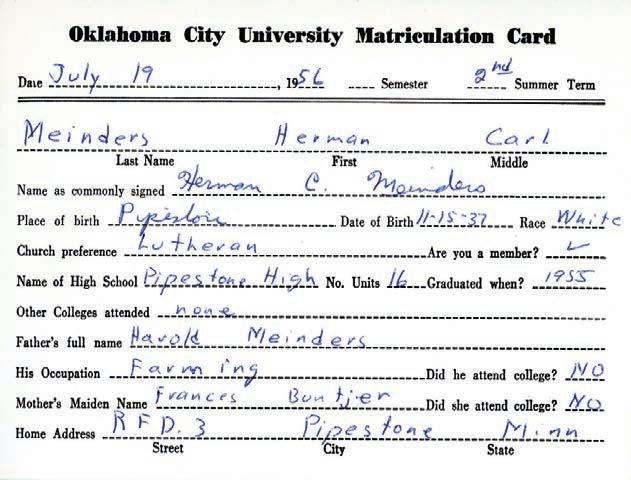 Oklahoma City University Matriculation Card
Date July 19, 1956 Semester 2nd Summer Term
Meinders Herman Carl
Last Name First Middle
Name as commonly signed Herman C. Meinders
Place of birth Date of Birth 11-15-37 Race White
Church preference Lutheran Are you a member? ✓
Name of High School Pipestone High No. Units 16 Graduated when? 1955
Other Colleges attended none
Father's full name Harold Meinders
His Occupation Farming Did he attend college? NO
Mother's Maiden Name Frances Buntjer Did she attend college? NO
Home Address RFD. 3 Pipestone Minn
Street City State